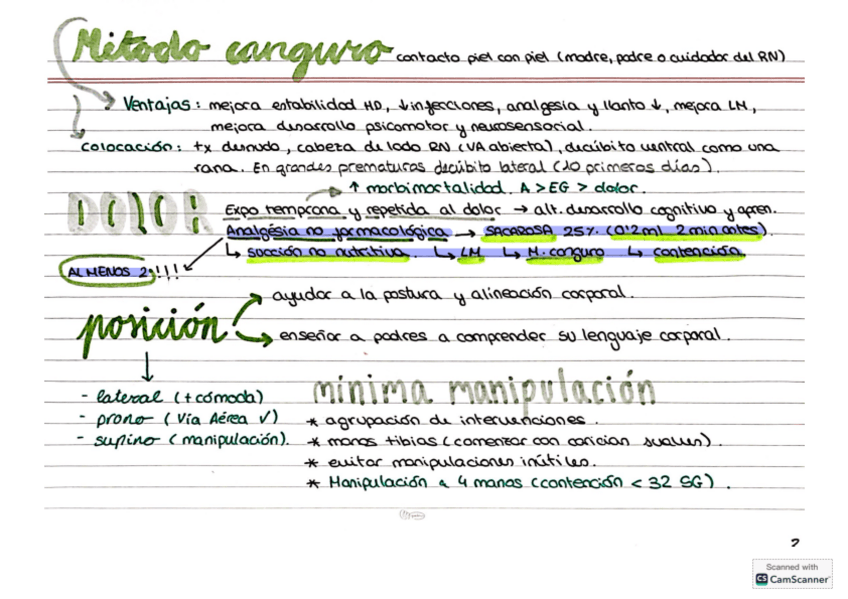 Método canguro contacto piel con piel (madre, padre o cuidador del RN)
Ventajas: mejora estabilidad HD, ↓infecciones, analgesia y llanto ↓, mejora LM,
mejora desarrollo psicomotor y neurosensorial.
Colocación: tx desnudo, cabeza de lado RN (VA abierta), decúbito ventral como una
rana. En grandes prematuros decúbito lateral (10 primeros días).
↑ morbimortalidad. A > EG > dolor.
DOLOR
Expo temprana y repetida al dolor → alt. desarrollo cognitivo y apren.
Analgésia no farmacológica → SACAROSA 25%. (0'2ml 2 min antes).
↳ succión no nutritiva. ↳ LM ↳ M. canguro ↳ contención.
AL MENOS 2!!!!
posición
ayudar a la postura y alineación corporal.
enseñar a padres a comprender su lenguaje corporal.
- lateral (+cómoda)
- prono (Vía Aérea ✓)
- supino (manipulación).
mínima manipulación
* agrupación de intervenciones.
* manos tibias (comenzar con caricias suaves).
* evitar manipulaciones inútiles.
* Manipulación a 4 manos (contención < 32 SG).
2
Scanned with
CS CamScanner